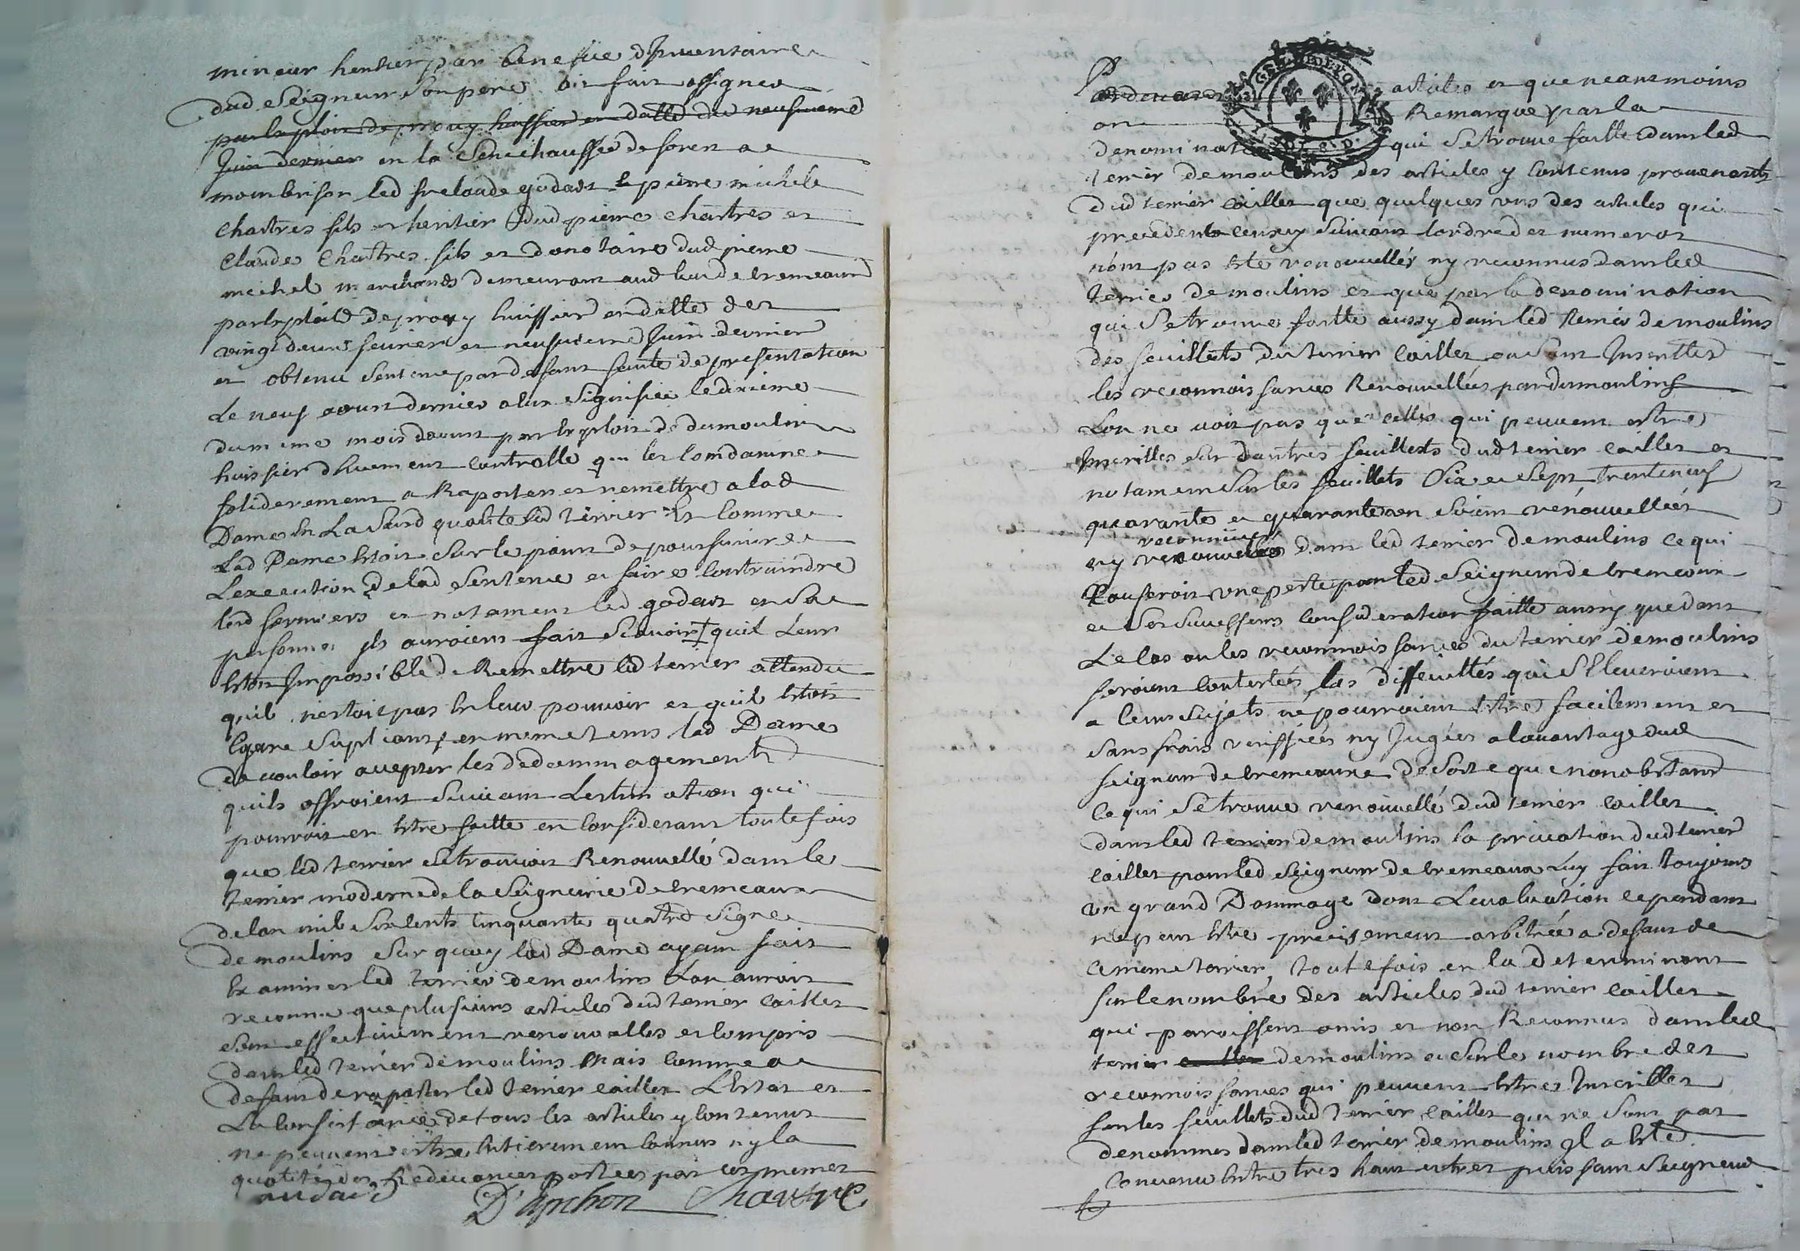 mineur heritier par benefice d'Inventaire
dud Seigneur son pere ait fait assigner
par exploit de prouy huissier en datte du neufvieme
Juin dernier en la Senechaussée de forez a
montbrison led sr claude godard pierre michel
Chartres fils et heritier dud pierre Chartres et
Claude Chartres fils et donataire dud pierre
michel marchands demeurant aud lieu de bremeaux
par exploit de prouy huissier en datte des
vingt deux fevrier et neufvieme Juin dernier
et obtenu sentence par defaut faute de presentation
Le neuf aoust dernier a eux signifiée le dixieme
du meme mois d'aoust par exploit de dumoulin
huissier duement controllé qui les condamne
soliderement a Raporter et remettre a lad
Dame En La Susd qualité led terrier Et comme
Lad Dame Etoit sur le point de poursuivre
L'execution de lad Sentence et faire Contraindre
lesd fermiers et notament led godard en sa
personne Ils auroient fait scavoir † quil Leur
Etoit Impossible de Remettre led terrier attendu
quil n'estoit pas En leur pouvoir et quil Etoit
Egaré supliant en meme tems lad Dame
de vouloir accepter les dedommagements
quils offroient suivant L'estimation qui
pourroit en Etre faitte en Considerant toutefois
que led terrier se trouvoit Renouvellé dans le
terrier moderne de la Seigneurie de bremeaux
de l'an mil Six Cents Cinquante quatre signé
demoulins sur quoy lad Dame ayant fait
Examiner led terrier demoulins L'on auroit
reconnu que plusieurs articles dud terrier Cailles
sont effectivement renouvallés et compris
dans led terrier demoulins mais comme a
defaut de raporter led terrier Cailles L'Etat et
La Consistance de tous les articles y Contenus
ne peuvent estre Entierement Connus ny la
quotité des Redevances portées par ces memes
D'apchon Chartre
articles et que neanmoins
on Remarque par la
denomination qui se trouve faitte dans led
terrier demoulins des articles y Contenus provenants
dud terrier Cailles que quelques uns des articles qui
precedent Ceux cy suivant L'ordre des numeros
n'ont pas Eté renouvellés ny reconnus dans led
terrier demoulins et que par la denomination
qui se trouve faitte aussy dans led terrier demoulins
des feuillets du terrier Cailles ou sont Inscrittes
les reconnoissances Renouvellées par dumoulins
L'on ne voit pas que celles qui peuvent estre
Inscrittes sur d'autres feuillets dud terrier Cailles et
notament sur les feuillets Dix et Sept Trente neuf
quarante et quarante un soient renouvellées
reconnues
ny renouvellés dans led terrier demoulins ce qui
Causeroit une perte pour led Seigneur de bremeaux
et ses successeurs Consideration faitte aussy que dans
Le cas ou les reconnoissances du terrier demoulins
seroient Contestées Les difficultés qui s'Eleveroient
a leurs sujets ne pourroient Etre facilement et
sans frais verifiées ny Jugées a l'avantage dud
seigneur de bremeaux De sorte que nonobstant
Ce qui se trouve renouvellé dud terrier Cailles
dans led terrier demoulins la privation dud terrier
Cailles pour led Seigneur de bremeaux Luy fait toujours
un grand Dommage dont L'evaluation Cependant
ne peut Etre precisement arbitrée a defaut de
Ce meme terrier, toutefois en la determinant
sur le nombre des articles dud terrier Cailles
qui paroissent omis et non Reconnus dans led
terrier demoulins et sur le nombre des
reconnoissances qui peuvent Etre Inscrittes
sur les feuillets dud terrier Cailles qui ne sont pas
denommés dans led terrier demoulins Il a Eté
Convenu Entre tres haut et tres puissant Seigneur